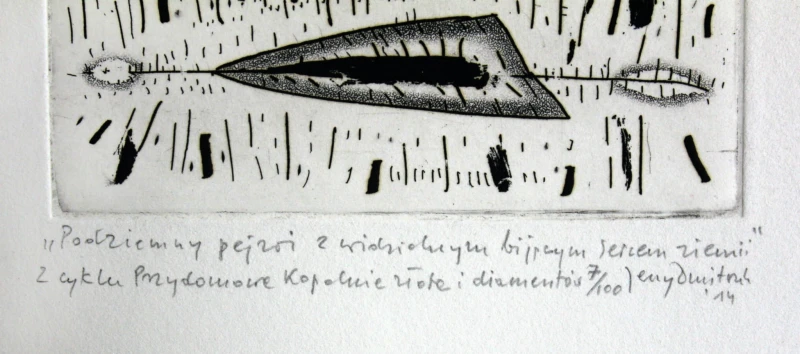 „Podziemny pejzaż z widzialnym bijącym sercem ziemi"
Z cyklu Przydomowe Kopalnie złota i diamentów 7/100 Jerzy Dmitruk '14